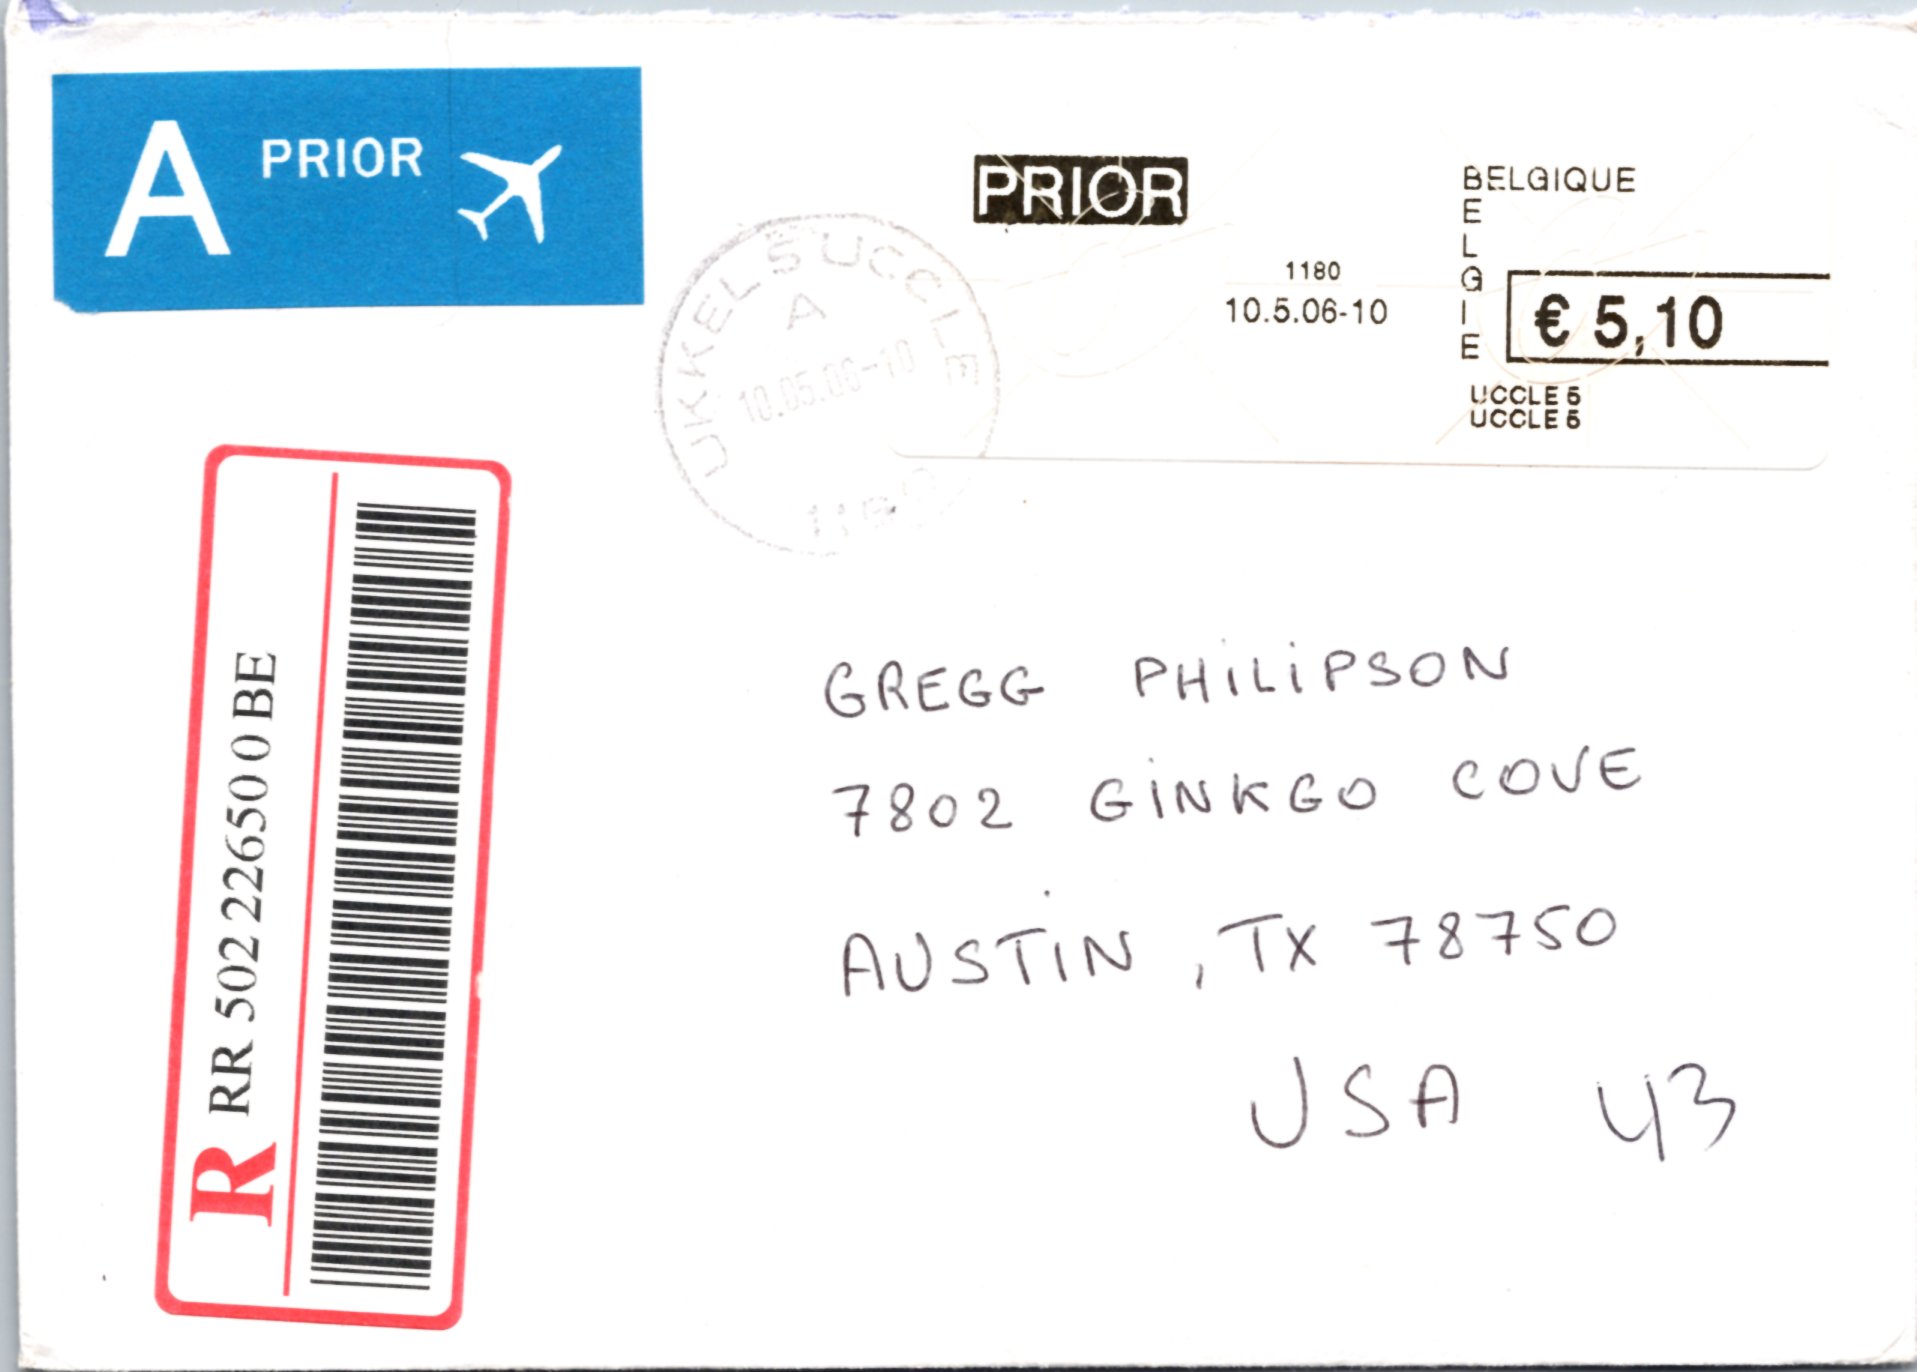 A PRIOR
PRIOR
BELGIQUE
BELGIE
1180
10.5.06-10
€ 5,10
UCCLE 5
UCCLE 5
UKKEL 5 UCCLE
A
10.05.06-10
1180
R RR 502 22650 0 BE
GREGG PHILIPSON
7802 GINKGO COVE
AUSTIN, TX 78750
USA 43